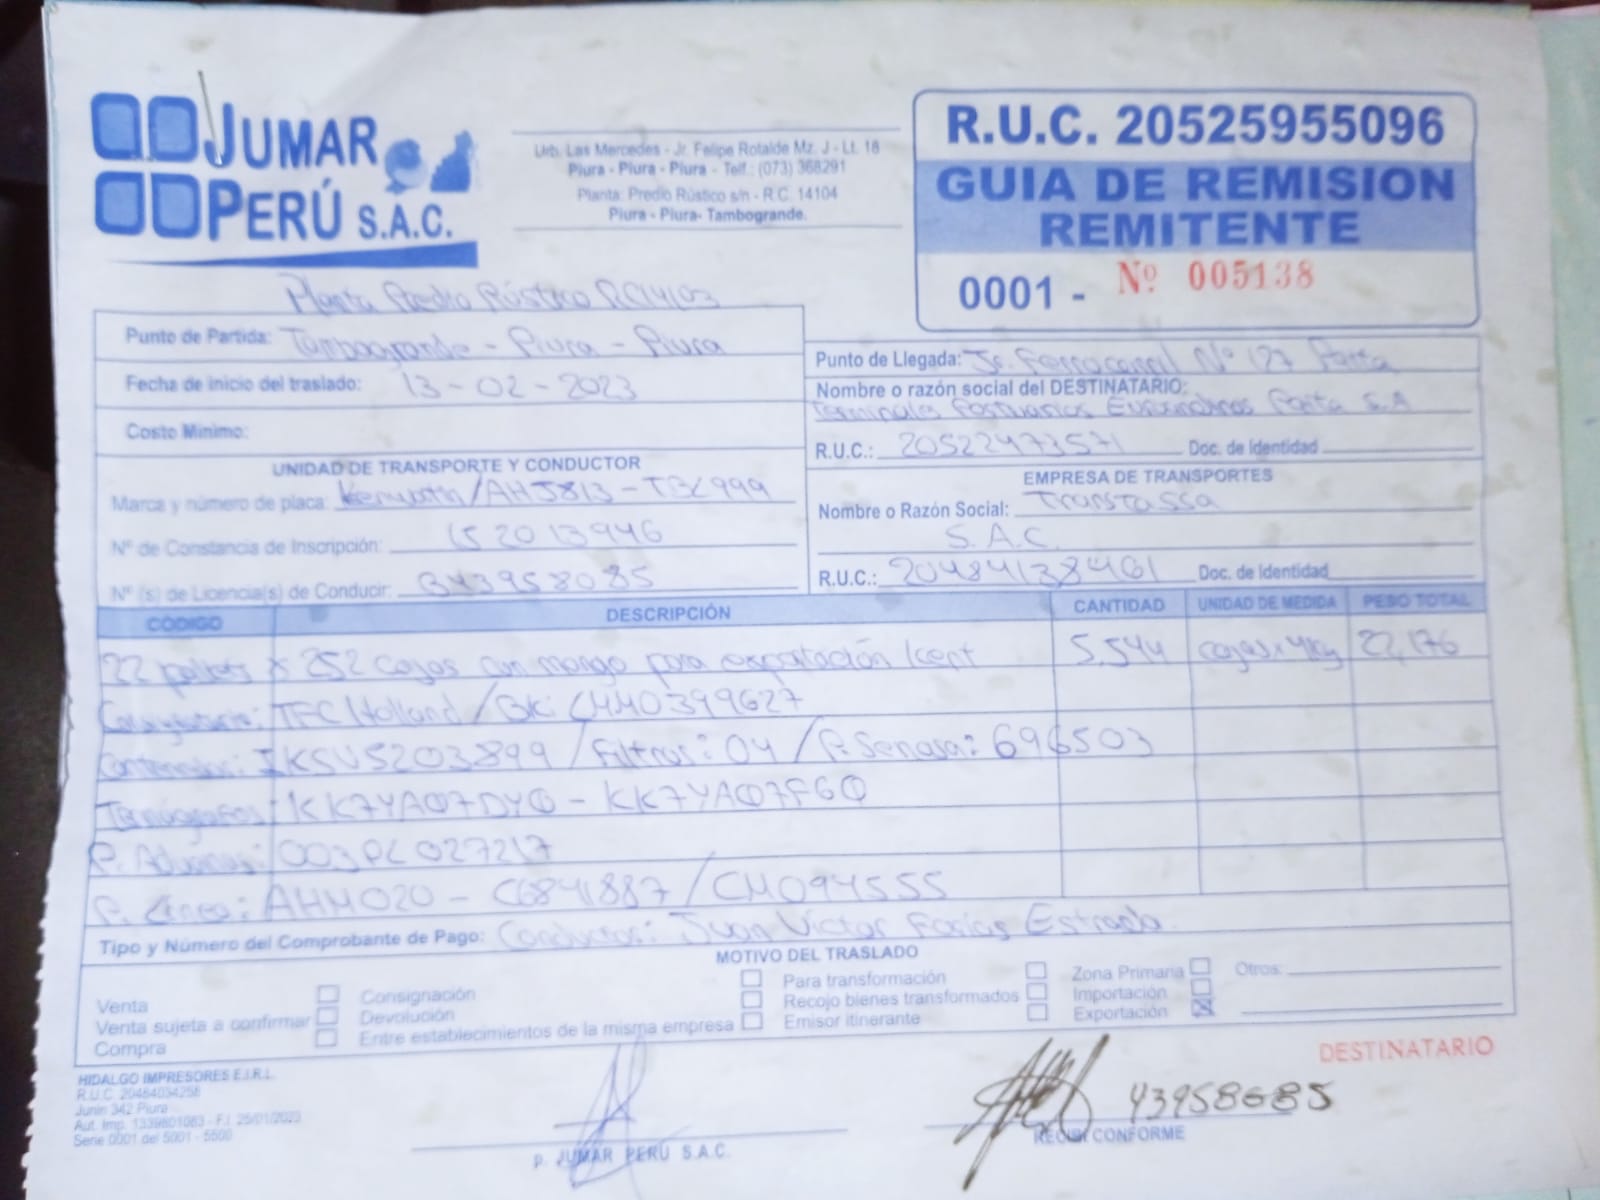 JUMAR
PERÚ S.A.C.
Urb. Las Mercedes - Jr. Felipe Rotalde Mz. J - Lt. 18
Piura - Piura - Piura - Telf.: (073) 368291
Planta: Predio Rústico s/n - R.C. 14104
Piura - Piura- Tambogrande.
R.U.C. 20525955096
GUIA DE REMISION
REMITENTE
0001 - Nº 005138
Planta Predio Rústico RC14103
Punto de Partida: Tambogrande - Piura - Piura
Fecha de inicio del traslado: 13-02-2023
Costo Minimo:
Punto de Llegada: Jr. Ferrocarril Nº 127 Paita
Nombre o razón social del DESTINATARIO:
Terminales Portuarios Euroandinos Paita S.A
R.U.C.: 20522473571 Doc. de Identidad
UNIDAD DE TRANSPORTE Y CONDUCTOR
Marca y número de placa: Kenworth/AHJ813-TBL999
Nº de Constancia de Inscripción: 152013946
Nº (s) de Licencia(s) de Conducir:
EMPRESA DE TRANSPORTES
Nombre o Razón Social: Transtassa
S.A.C.
R.U.C.: 20484138461 Doc. de Identidad
CÓDIGO DESCRIPCIÓN CANTIDAD UNIDAD DE MEDIDA PESO TOTAL
22 pallets x 252 cajas con mango para exportación Kent 5,544 cajas x 4kg 22,176
TFC Holland / BK: CMM0399627
Contenedor: IKSU5203899 / Filtros: 04 / P. Senasa: 696503
Termografos: KK7YA07DY0 - KK7YA07F60
P. Aduanas: 003PL027217
P. Linea: AHM020 - C6841887 / CM094555
Tipo y Número del Comprobante de Pago: Conductor: Juan Victor Farías Estrada
MOTIVO DEL TRASLADO
Venta
Venta sujeta a confirmar
Compra
Consignación
Devolución
Entre establecimientos de la misma empresa
Para transformación
Recojo bienes transformados
Emisor itinerante
Zona Primaria
Importación
Exportación
Otros:
DESTINATARIO
HIDALGO IMPRESORES E.I.R.L.
R.U.C. 20484034258
Junin 342 Piura
Aut. Imp. 1339801083 - F.I. 25/01/2023
Serie 0001 del 5001 - 5500
p. JUMAR PERÚ S.A.C.
43958685
RECIBI CONFORME